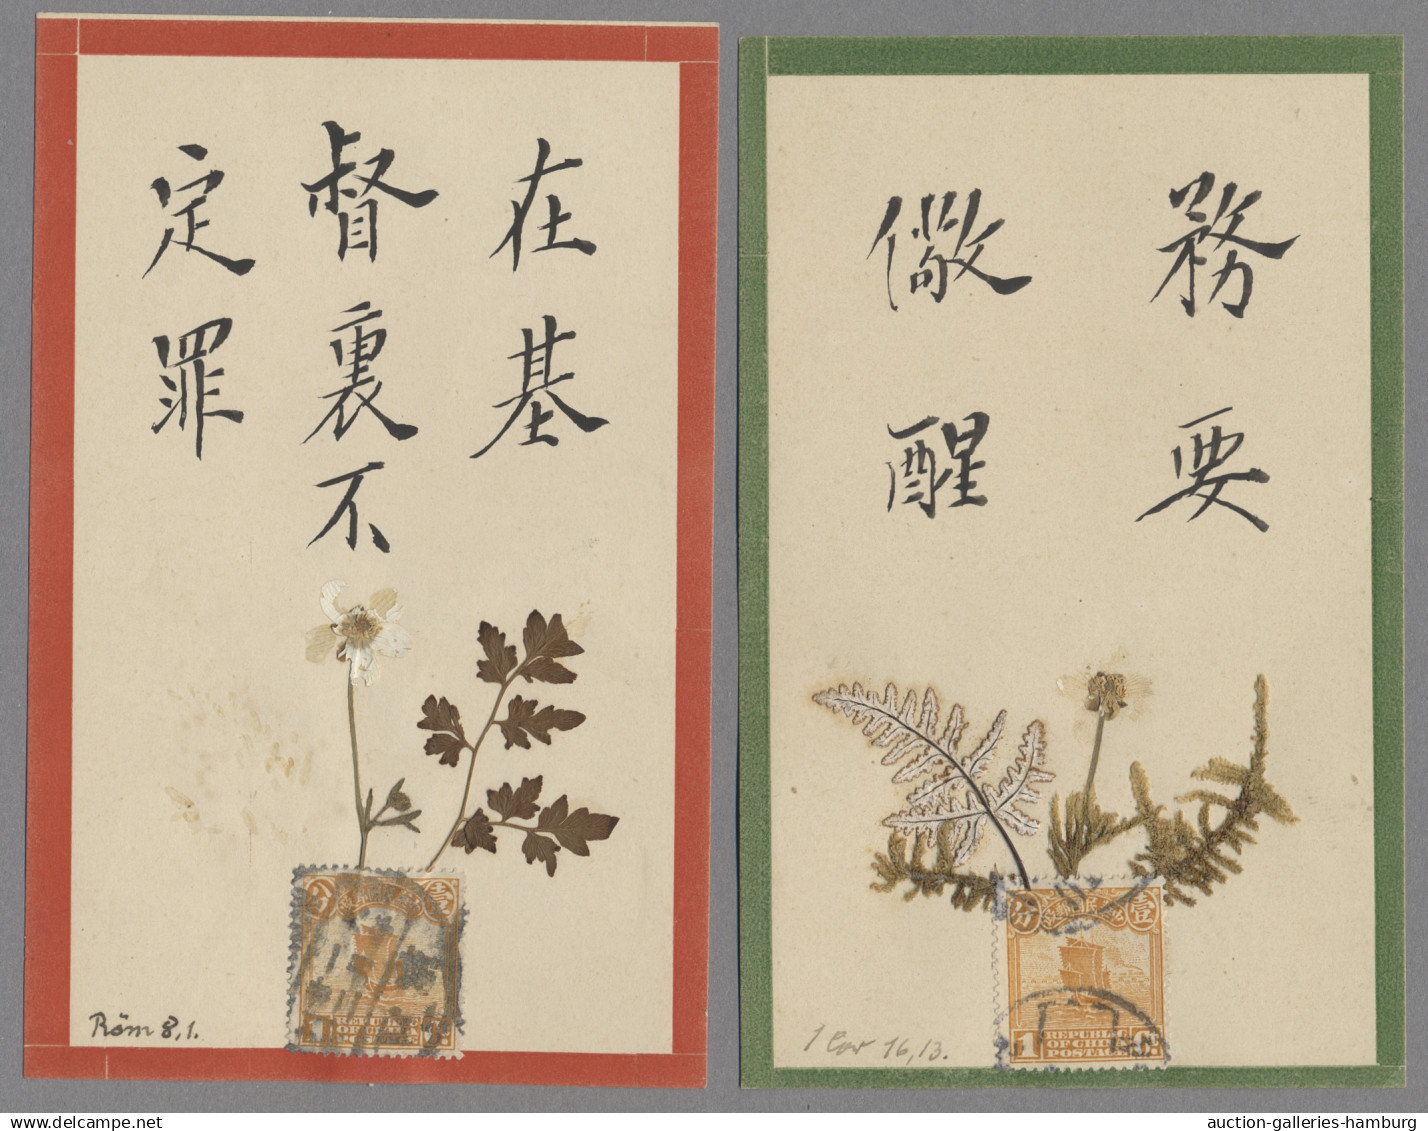 在基
督裏不
定罪
Röm 8,1.
分
壹
1
REPUBLIC
OF CHINA
POSTAGE
務要
儆醒
1 Cor 16,13.
分
壹
1
REPUBLIC
OF CHINA
POSTAGE
auction-galleries-hamburg